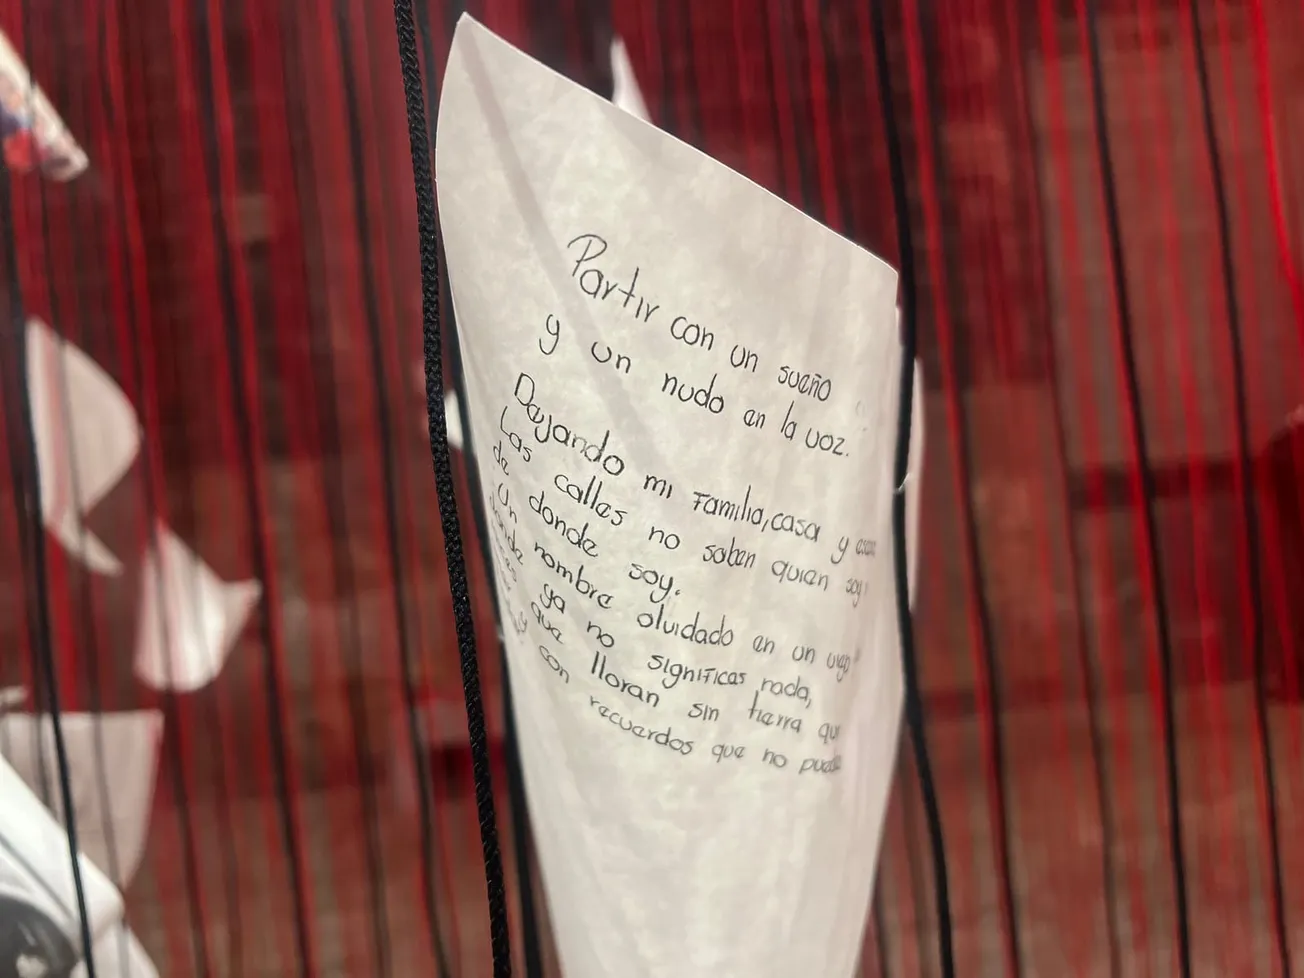 Partir con un sueño
y un nudo en la voz.
Dejando mi familia, casa y
Las calles no saben quien soy
de donde soy.
Un nombre olvidado en un
donde ya no significas nada,
que lloran sin tierra
con recuerdos que no